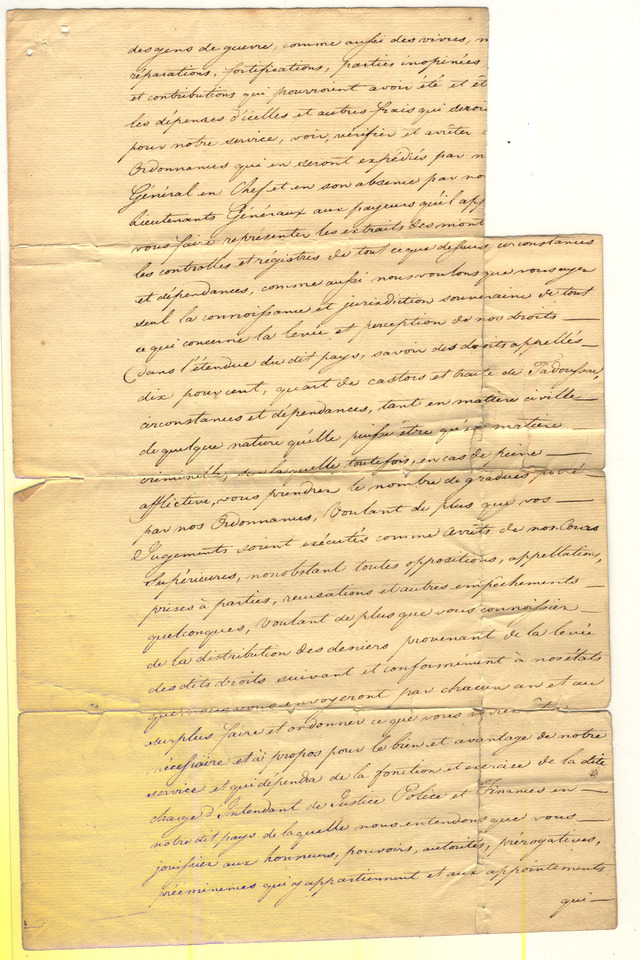 des gens de guerre, comme aussi des vivres, m
réparations, fortifications, parties inopinées
et contributions qui pourroient avoir été et êt
les dépenses d'icelles et autres frais qui seroi
pour notre service, voir, vérifier et arrêter
Ordonnances qui en seront expédiés par n
Général en Chef et en son absence par no
Lieutenants Généraux aux payeurs qu'il app
vous faire representer les extraits des mont
les controlles et registres de tout ce que dessus, circonstances
et dépendances, comme aussi nous voulons que vous ayez
seul la connoissance et jurisdiction souveraine de tout
ce qui concerne la levée et perception de nos droits —
dans l'étendue du dit pays, savoir des droits appellés —
dix pour cent, quart de castors et traite de Tadoussac,
circonstances et dépendances, tant en matière civille —
de quelque nature qu'elle puisse être qu'en matière
criminelle, sur laquelle toutefois, en cas de peine —
afflictive, vous prendrez le nombre de gradués porté —
par nos Ordonnances, Voulant de plus que vos —
Jugements soient exécutés comme arrêts de nos Cours
Supérieures, nonobstant toutes oppositions, appellation,
prises à parties, recusations et autres empêchements —
quelconques, Voulant de plus que vous connoissiez —
de la distribution des deniers provenant de la levée
des dits droits suivant et conformément à nos états
que nous vous envoyeront par chacun an et au
surplus faire et ordonner ce que vous verrez être
nécessaire et à propos pour le bien et avantage de notre
service et qui dépendra de la fonction et exercice de la dite
charge d'Intendant de Justice Police et Finances en —
notre dit pays de laquelle nous entendons que vous —
jouissiez aux honneurs, pouvoirs, autorités, prérogatives,
prééminences qui y appartiennent et aux appointements
qui —